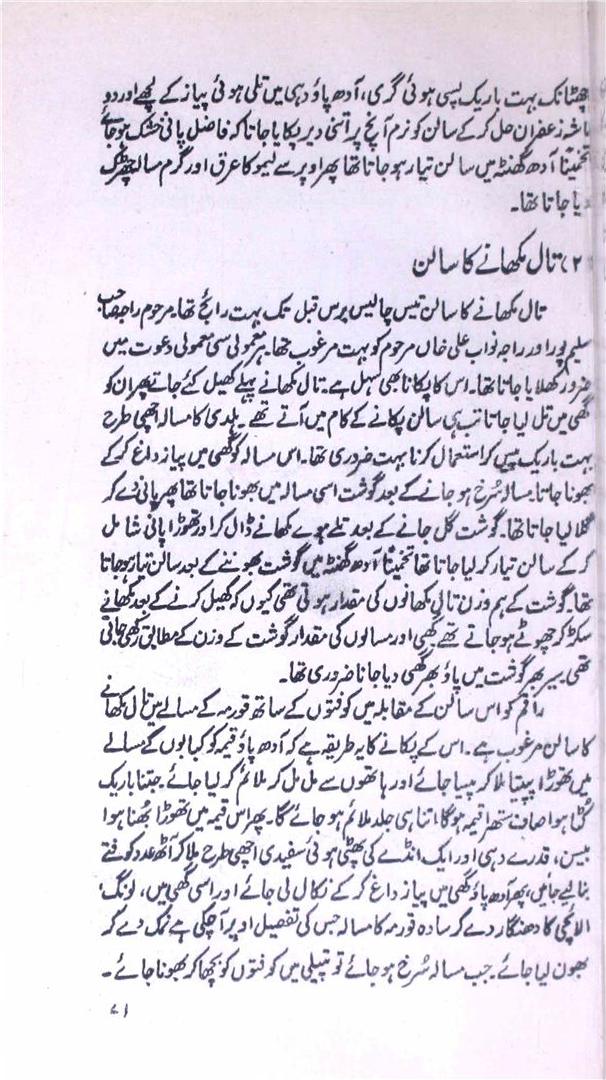 چھٹانک بہت باریک پسی ہوئی گری، آدھ پاؤ دہی میں تلی ہوئی پیاز کے لچھے اور دو
ماشہ زعفران حل کر کے سالن کو نرم آنچ پر اتنی دیر پکایا جاتا کہ فاضل پانی خشک ہو جائے
تخمیناً آدھ گھنٹہ میں سالن تیار ہو جاتا تھا پھر اوپر سے لیمو کا عرق اور گرم مسالہ چھڑک
دیا جاتا تھا۔
(۲) تال مکھانے کا سالن
تال مکھانے کا سالن تیس چالیس برس قبل تک بہت رائج تھا۔ مرحوم راجہ صاحب
سلیم پور اور راجہ نواب علی خاں مرحوم کو بہت مرغوب تھا۔ ہر معمولی سی معمولی دعوت میں
ضرور کھلایا جاتا تھا۔ اس کا پکانا بھی سہل ہے۔ تال مکھانے پہلے کھیل کئے جاتے پھر ان کو
گھی میں تل لیا جاتا تب ہی سالن پکانے کے کام میں آتے تھے۔ ہلدی کا مسالہ اچھی طرح
بہت باریک پیس کر استعمال کرنا بہت ضروری تھا۔ اس مسالہ کو گھی میں پیاز داغ کر کے
بھونا جاتا۔ مسالہ سُرخ ہو جانے کے بعد گوشت اسی مسالہ میں بھونا جاتا تھا پھر پانی دے کر
گلا لیا جاتا تھا۔ گوشت گل جانے کے بعد تلے ہوے مکھانے ڈال کر اور تھوڑا پانی شامل
کر کے سالن تیار کر لیا جاتا تھا تخمیناً آدھ گھنٹہ میں گوشت بھوننے کے بعد سالن تیار ہو جاتا
تھا۔ گوشت کے ہم وزن تال مکھانوں کی مقدار ہوتی تھی کیوں کہ کھیل کرنے کے بعد مکھانے
سکڑ کر چھوٹے ہو جاتے تھے۔ گھی اور مسالوں کی مقدار گوشت کے وزن کے مطابق رکھی جاتی
تھی۔ سیر بھر گوشت میں پاؤ بھر گھی دیا جانا ضروری تھا۔
راقم کو اس سالن کے مقابلہ میں کوفتوں کے ساتھ قورمہ کے مسالے میں تال مکھانے
کا سالن مرغوب ہے۔ اس کے پکانے کا یہ طریقہ ہے کہ آدھ پاؤ قیمہ کو کبابوں کے مسالے
میں تھوڑا پپیتا ملا کر پیسا جائے اور ہاتھوں سے مل مل کر ملائم کر لیا جائے۔ جتنا باریک
کٹا ہوا صاف ستھرا قیمہ ہوگا اتنا ہی جلد ملائم ہو جائے گا۔ پھر اس قیمہ میں تھوڑا بھُنا ہوا
بیسن، قدرے دہی اور ایک انڈے کی پھٹی ہوئی سفیدی اچھی طرح ملا کر آٹھ عدد کوفتے
بنا لیے جائیں، پھر آدھ پاؤ گھی میں پیاز داغ کر کے نکال لی جائے اور اسی گھی میں، لونگ،
الائچی کا دھنگار دے کر سادہ قورمہ کا مسالہ جس کی تفصیل اوپر آچکی ہے نمک دے کر
بھون لیا جائے۔ جب مسالہ سُرخ ہو جائے تو پتیلی میں کوفتوں کو بچھا کر بھونا جائے۔
۷۱